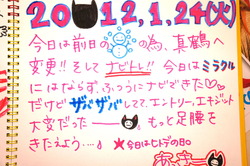 2012,1,24(火)
今日は前日の の為、真鶴へ
変更!! そして ナビトレ!! 今日はミラクル
にはならず、ふつうにナビできた♡
だけど ザバザバしてて、エントリー、エキジット
大変だったー もっと足腰を
きたえよう・・・♪ ★今日はヒトデの日○